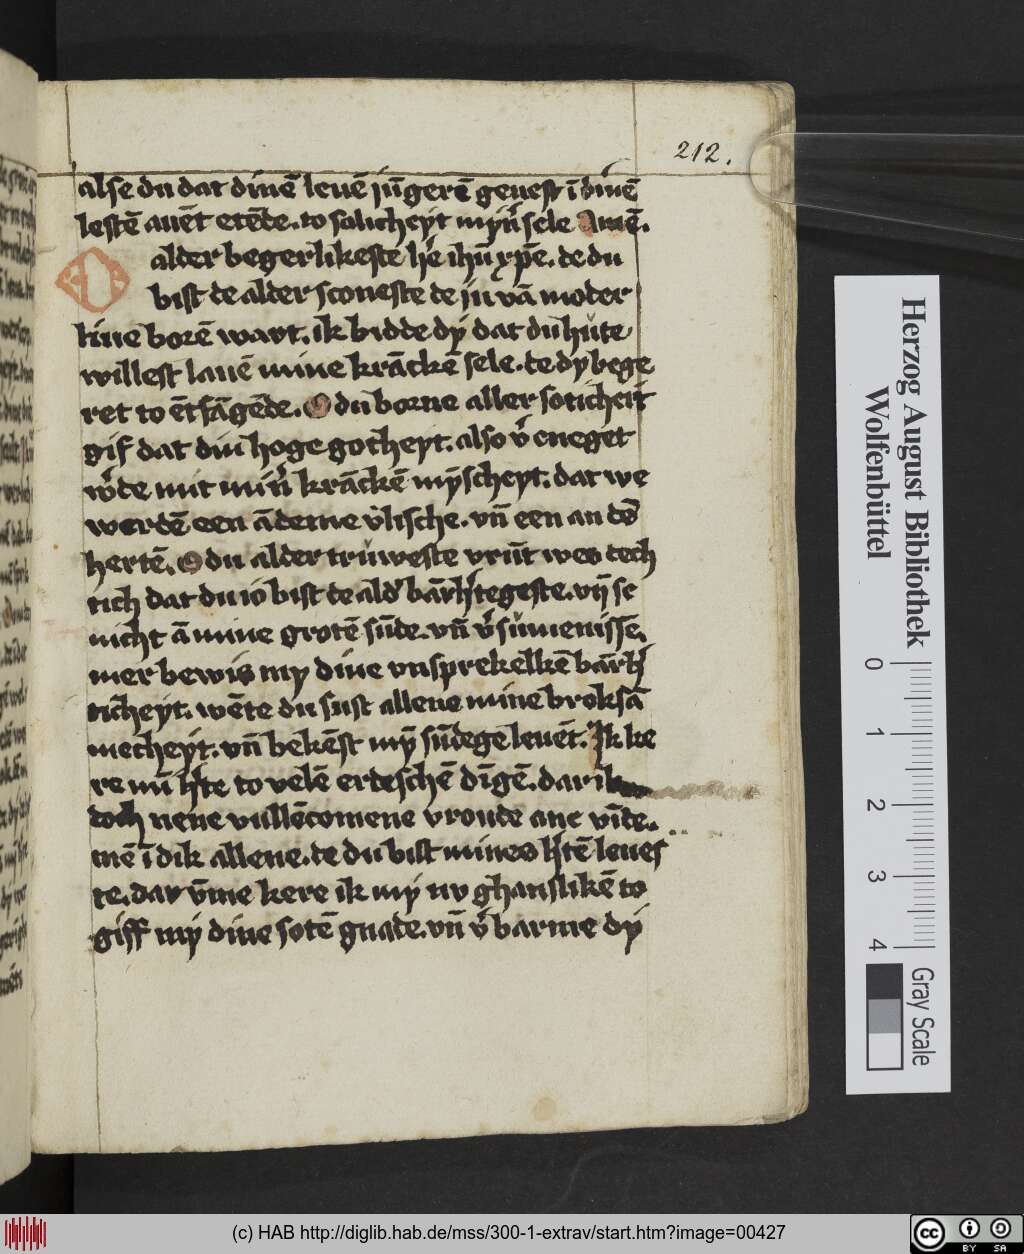 212.
alse du dat dinē leuē jūgerē geuest ī dinē
lestē auēt etēde. to salicheyt myn̄ sele Amē.
O alder begerlikeste he ihū xpē. de du
bist de alder sconeste de ju vā moder
kine borē wart. ik bidde dy dat du hute
willest lauē mine krāckē sele. de dy bege
ret to ētfāgēde. O du borne aller soticheit
gif dat din hoge gotheyt. also v eneget
w'de mit min̄ krāckē mȳscheyt. dat we
werdē een ādeme v'lische. vn̄ een an dē
hertē. O du alder truweste vrūt wes dech
tich dat du io bist de ald' bārh'tegeste. vn̄ se
nicht ā mine grotē sūde. vn̄ v'sumenisse.
mer bewis my dine vnsprekelkē bārh'
ticheyt. wēte du sust allene mine broksā
mecheyt. vn̄ bekēst mȳ sūdegē leuēt. Ik ke
re mīn h'te to velē erdeschē dīgē. dar ik
doch nene vullēcomene vroude ane vīde.
mē ī dik allene. de du bist mines h'tē leues
te. dar v̄me kere ik my nv ghanslikē to
giff my dine sotē gnade. vn̄ v'barme dy
Herzog August Bibliothek
Wolfenbüttel
0 1 2 3 4
Gray Scale
(c) HAB http://diglib.hab.de/mss/300-1-extrav/start.htm?image=00427
cc BY SA